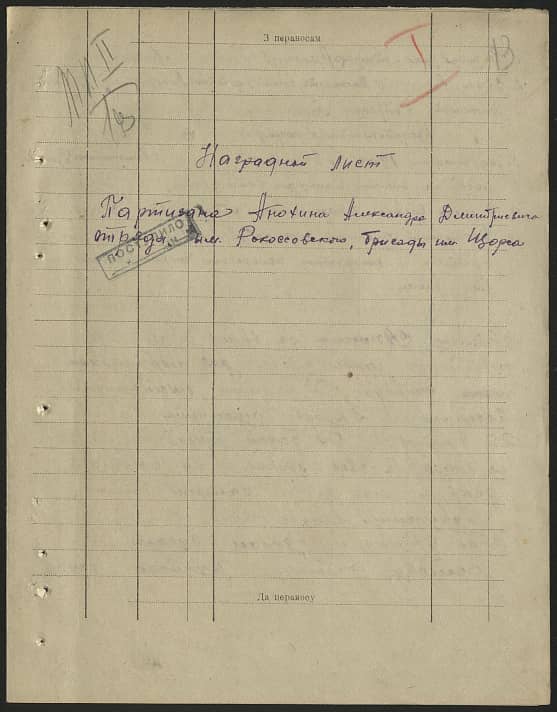 З переносам
I
13
Наградной лист
Партизана Анохина Александра Дмитриевича
отряда им. Рокоссовского, бригады им. Щорса
ПОСТУПИЛО
Да переносу